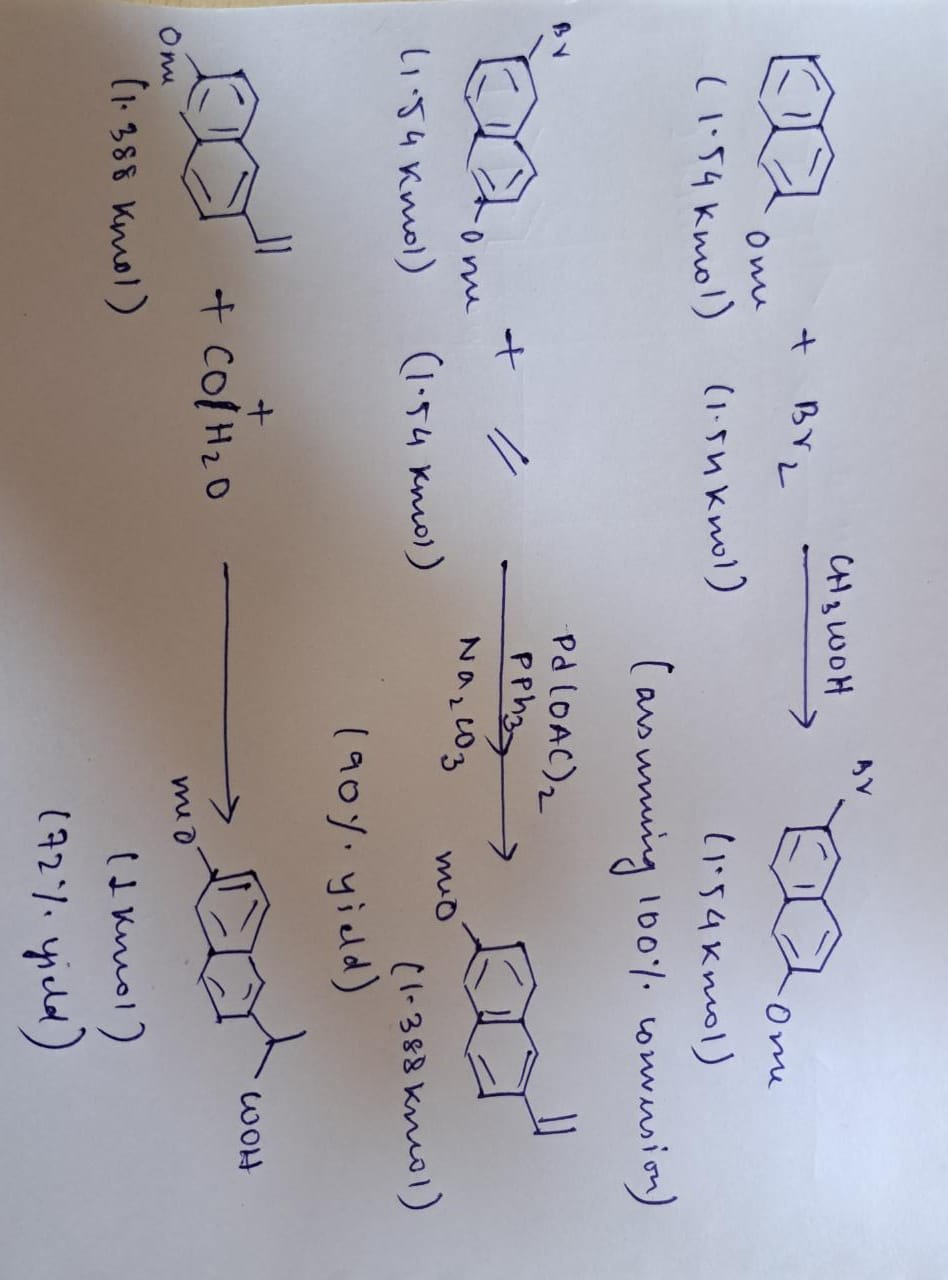 OMe + Br2 CH3COOH Br OMe
(1.54 Kmol) (1.54 Kmol) (1.54 Kmol)
(assuming 100% conversion)
Br OMe + Pd(OAc)2 PPh3 Na2CO3 MeO
(1.54 Kmol) (1.54 Kmol) (1.388 Kmol)
(90% yield)
OMe + CO/H2O + MeO COOH
(1.388 Kmol) (1 Kmol)
(72% yield)